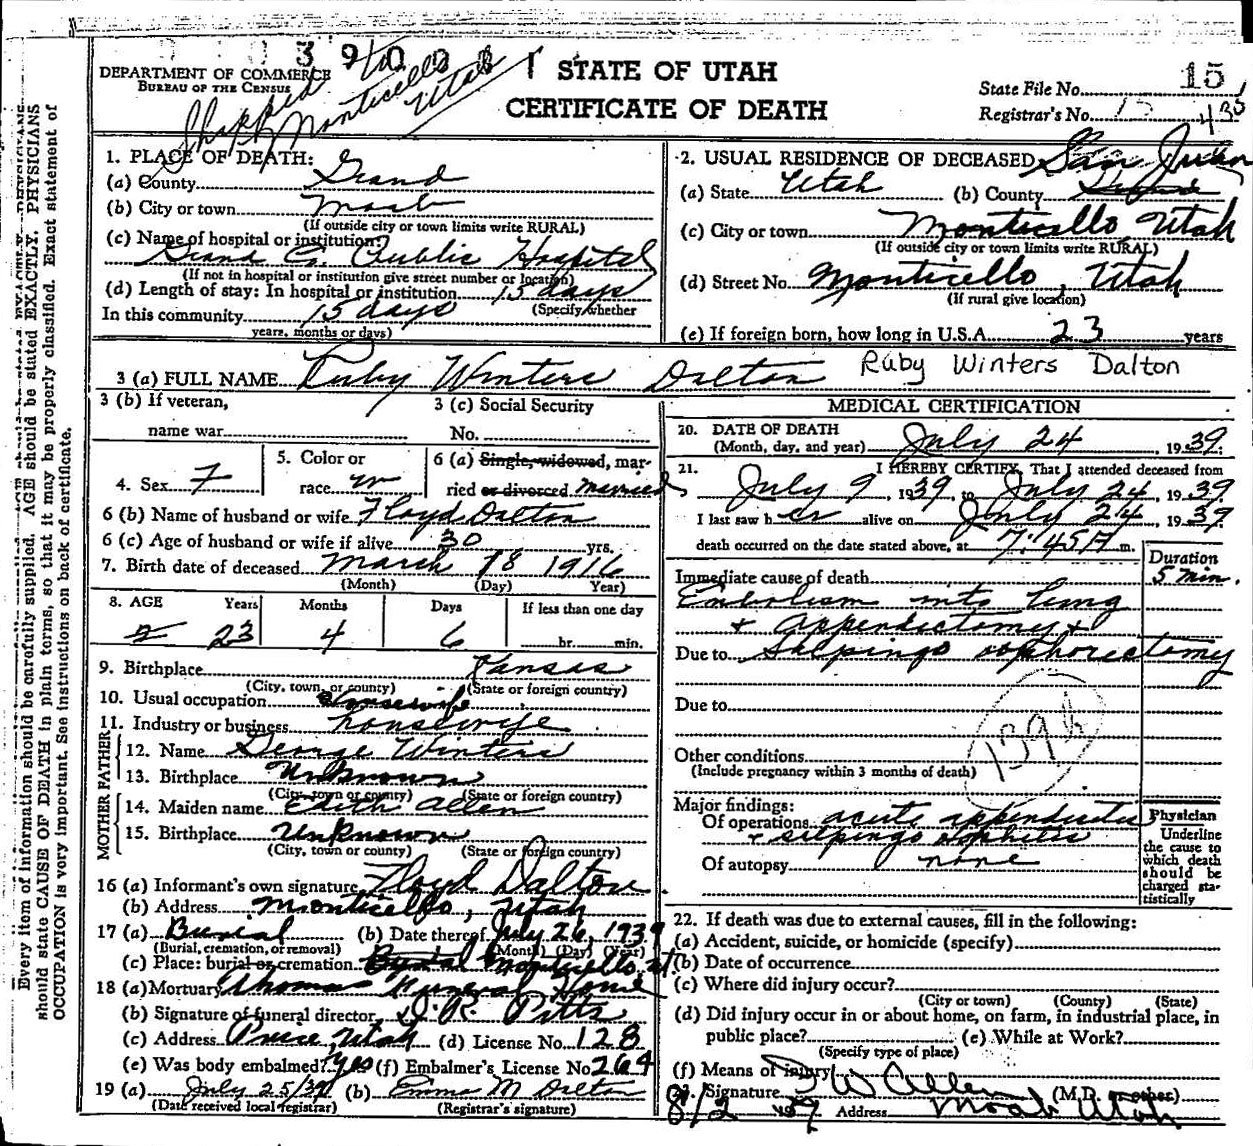 3 9 0
DEPARTMENT OF COMMERCE
BUREAU OF THE CENSUS
Shipped to Monticello Utah
STATE OF UTAH
CERTIFICATE OF DEATH
State File No. 15
Registrar's No. 15
435
1. PLACE OF DEATH:
(a) County Grand
(b) City or town Moab
(If outside city or town limits write RURAL)
(c) Name of hospital or institution?
Grand Co. Public Hospital
(If not in hospital or institution give street number or location)
(d) Length of stay: In hospital or institution 15 days
(Specify whether
In this community 15 days
years, months or days)
2. USUAL RESIDENCE OF DECEASED San Juan
(a) State Utah (b) County
(c) City or town Monticello Utah
(If outside city or town limits write RURAL)
(d) Street No. Monticello, Utah
(If rural give location)
(e) If foreign born, how long in U.S.A. 23 years
3 (a) FULL NAME Ruby Winters Dalton Ruby Winters Dalton
3 (b) If veteran,
name war
3 (c) Social Security
No.
4. Sex F
5. Color or
race W
6 (a) Single, widowed, mar-
ried or divorced married
6 (b) Name of husband or wife Floyd Dalton
6 (c) Age of husband or wife if alive 30 yrs.
7. Birth date of deceased March 18 1916
(Month) (Day) Year)
8. AGE Years Months Days If less than one day
23 4 6 hr. min.
9. Birthplace Kansas
(City, town, or county) (State or foreign country)
10. Usual occupation Housewife
11. Industry or business housewife
FATHER
12. Name George Winters
13. Birthplace Unknown
(City, town or county) (State or foreign country)
MOTHER
14. Maiden name Edith Allen
15. Birthplace Unknown
(City, town or county) (State or foreign country)
16 (a) Informant's own signature Floyd Dalton
(b) Address Monticello, Utah
17 (a) Burial (b) Date thereof July 26, 1939
(Burial, cremation, or removal) (Month) (Day) (Year)
(c) Place: burial or cremation Burial Monticello, Ut
18 (a) Mortuary Thomas Funeral Home
(b) Signature of funeral director D. R. Pitts
(c) Address Price, Utah (d) License No. 128
(e) Was body embalmed? yes (f) Embalmer's License No. 264
19 (a) July 25/39 (b) Emma M Dalton
(Date received local registrar) (Registrar's signature)
MEDICAL CERTIFICATION
20. DATE OF DEATH
(Month, day, and year) July 24, 1939
21. I HEREBY CERTIFY, That I attended deceased from
July 9, 1939, to July 24, 1939
I last saw her alive on July 24, 1939
death occurred on the date stated above, at 7:45A m.
Duration
Immediate cause of death 5 min.
Embolism into lung
+ Appendectomy +
Due to Salpingo oophorectomy
Due to
Other conditions
(Include pregnancy within 3 months of death)
139b
Major findings:
Of operations acute appendicitis
+ salpingo oophritis
Of autopsy none
Physician
Underline
the cause to
which death
should be
charged sta-
tistically
22. If death was due to external causes, fill in the following:
(a) Accident, suicide, or homicide (specify)
(b) Date of occurrence
(c) Where did injury occur?
(City or town) (County) (State)
(d) Did injury occur in or about home, on farm, in industrial place, in
public place? (e) While at Work?
(Specify type of place)
(f) Means of injury
Signature W Allen (M.D. or other)
8/2 Address Moab Utah
Every item of information should be carefully supplied. AGE should be stated EXACTLY. PHYSICIANS
should state CAUSE OF DEATH in plain terms, so that it may be properly classified. Exact statement of
OCCUPATION is very important. See instructions on back of certificate.